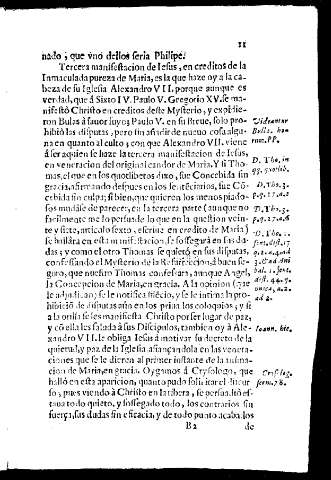 11
nado, que vno dellos seria Philipe.
Tercera manifestacion de Iesus, en creditos de la
Inmaculada pureza de Maria, es la que haze oy a la ca-
beza de su Iglesia Alexandro VII. porque aunque es
verdad, que à Sixto IV. Paulo V. Gregorio XV. se ma-
nifestò Christo en creditos deste Mysterio, y expidie-
ron Bulas à fauor suyo; Paulo V. en su Breue, solo pro-
hibiò las disputas, pero sin añadir de nueuo cosa algu-
na en quanto al culto; con que Alexandro VII. viene
à ser aquien se haze la tercera manifestacion de Iesus,
en veneracion del original candor de Maria. Y si Tho-
mas, el que en los quotliberos dixo, fue Concebida sin
gracia, afirmando despues en los sentēciarios, fue Cō-
cebida sin culpa; si bien, que quieren los menos piado-
sos mudasse de parecer, en la tercera parte (aunque no
facilmente me lo persuado lo que en la question vein-
te y siete, articulo sexto, escriue en credito de Maria)
se hallara en esta manifestacion, se sossegarà en sus du-
das; y como el otro Thomas se quietò en sus disputas,
confessando el Mysterio de la Resurreccion, à buen se-
guro, que nuestro Thomas confessara, aunque Angel,
la Concepcion de Maria, en gracia. A la opinion (que
le adjudican) se le notifica silencio, y se le intima la pro-
hibicion de disputas año en los primeros coloquios; y si
à la orilla se les manifiesta Christo por ser lugar de paz,
y cō ella les saluda à sus Discipulos, tambien oy à Ale-
xandro VII. le obliga Iesus à motiuar su decreto de la
quietud, y paz de la Iglesia afiançandola en las venera-
ciones que se le dieren al primer instante de la anima-
cion de Maria, en gracia. Oygamos à Crysologo, que
hallò en esta aparicion, quanto pudo solicitar el discur-
so; pues viendo à Christo en la ribera, se persuadiò es-
taua todo quieto, y sossegado todo, los contrarios sin
fuerça, sus dudas sin eficacia, y de todo punto acabalos
B2 de
Videantur
Bulla horum, PP.
D. Tho. in
qq. quotlib.
D. Tho. 3.
p. q. 27. a. 2
D. Tho. 3.
p. q. 27. a. 6
D. Tho. 1.
sent. dist. 17
q. 2. a. 4. ad
3.
dist. 44. q.
vnica, a. 3.
ad 3.
Ioann. hic.
Crysolog.
serm. 78.